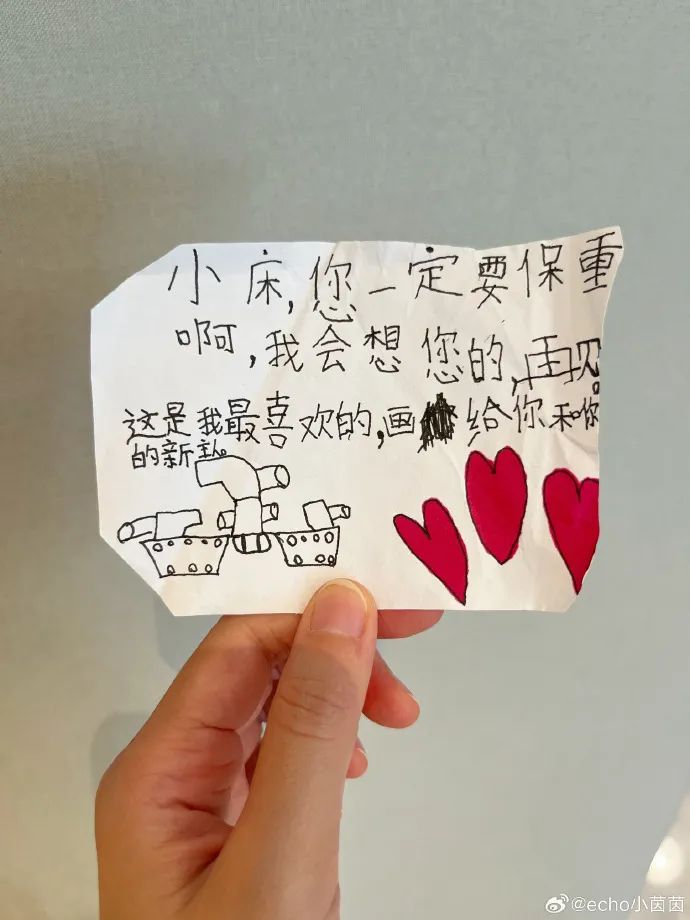 小床,您一定要保重
啊,我会想您的,再见。
这是我最喜欢的,画给你和你
的新主。
@echo小茵茵